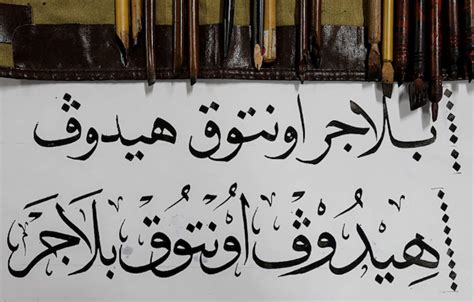 بلاجر اونتوق هيدوڤ
هِيدُوڤ اُونتُوق بَلَاجَر